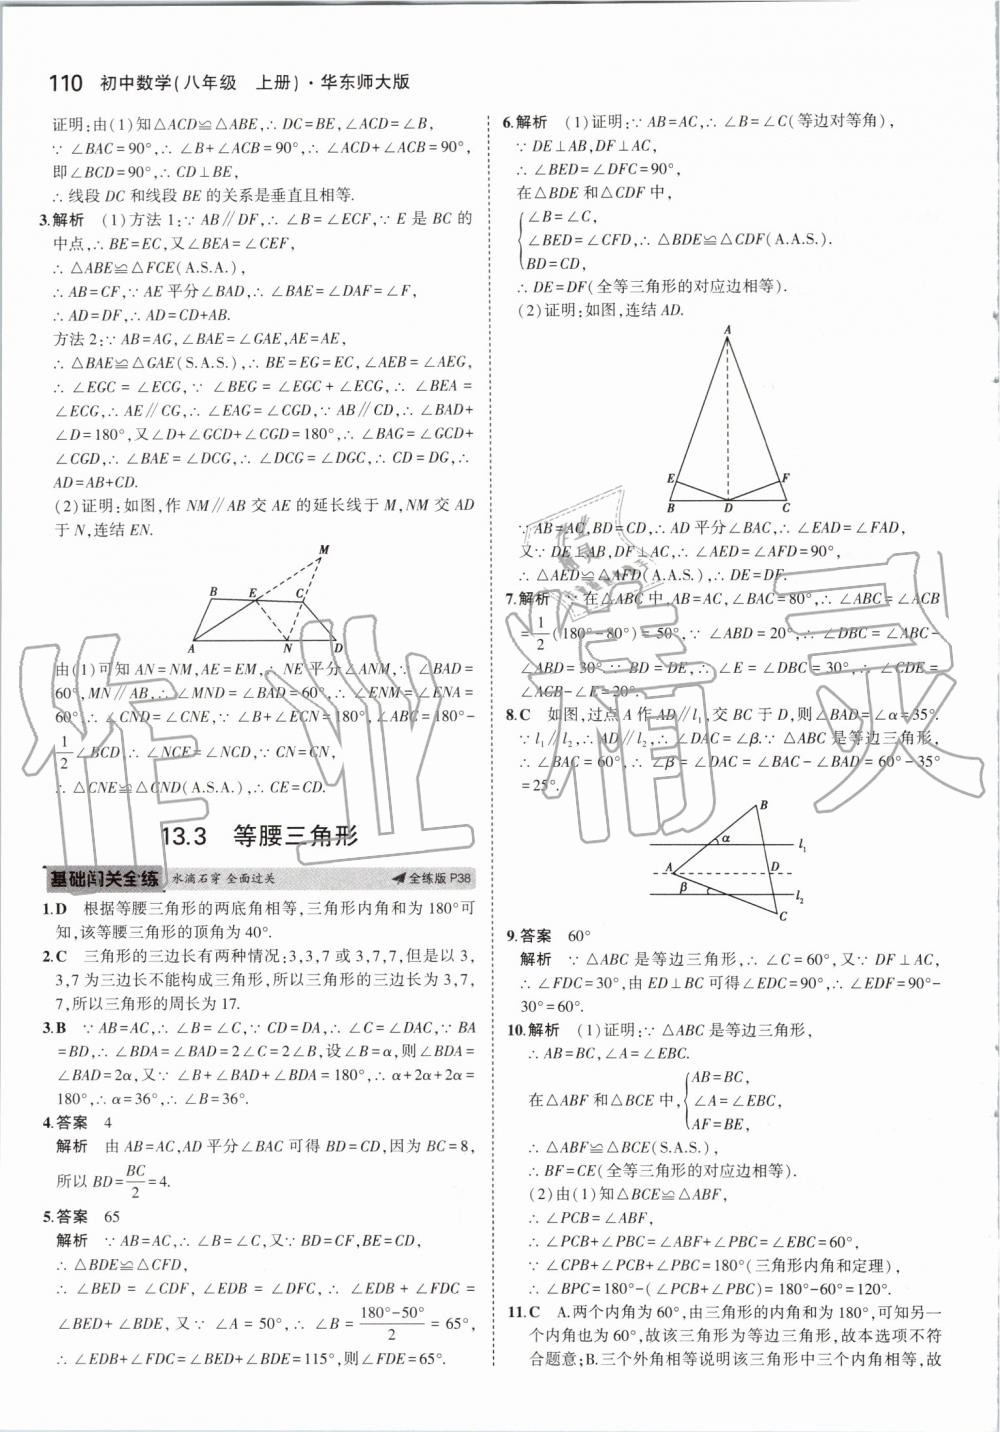 110 初中数学(八年级 上册)·华东师大版
证明:由(1)知△ACD≌△ABE,∴DC=BE,∠ACD=∠B,
∵∠BAC=90°,∴∠B+∠ACB=90°,∴∠ACD+∠ACB=90°,
即∠BCD=90°,∴CD⊥BE,
∴线段DC和线段BE的关系是垂直且相等.
3.解析 (1)方法1:∵AB∥DF,∴∠B=∠ECF,∵E是BC的
中点,∴BE=EC,又∠BEA=∠CEF,
∴△ABE≌△FCE(A.S.A.),
∴AB=CF,∵AE平分∠BAD,∴∠BAE=∠DAF=∠F,
∴AD=DF,∴AD=CD+AB.
方法2:∵AB=AG,∠BAE=∠GAE,AE=AE,
∴△BAE≌△GAE(S.A.S.),∴BE=EG=EC,∠AEB=∠AEG,
∴∠EGC=∠ECG,∵∠BEG=∠EGC+∠ECG,∴∠BEA=
∠ECG,∴AE∥CG,∴∠EAG=∠CGD,∵AB∥CD,∴∠BAD+
∠D=180°,又∠D+∠GCD+∠CGD=180°,∴∠BAG=∠GCD+
∠CGD,∴∠BAE=∠DCG,∴∠DCG=∠DGC,∴CD=DG,∴
AD=AB+CD.
(2)证明:如图,作NM∥AB交AE的延长线于M,NM交AD
于N,连结EN.
M
B E C
A N D
由(1)可知AN=NM,AE=EM,∴NE平分∠ANM,∵∠BAD=
60°,MN∥AB,∴∠MND=∠BAD=60°,∴∠ENM=∠ENA=
60°,∴∠CND=∠CNE,∵∠B+∠ECN=180°,∠ABC=180°-
1/2∠BCD,∴∠NCE=∠NCD,∵CN=CN,
∴△CNE≌△CND(A.S.A.),∴CE=CD.
13.3 等腰三角形
基础闯关全练 水滴石穿 全面过关 全练版P38
1.D 根据等腰三角形的两底角相等,三角形内角和为180°可
知,该等腰三角形的顶角为40°.
2.C 三角形的三边长有两种情况:3,3,7或3,7,7,但是以3,
3,7为三边长不能构成三角形,所以三角形的三边长为3,7,
7,所以三角形的周长为17.
3.B ∵AB=AC,∴∠B=∠C,∵CD=DA,∴∠C=∠DAC,∵BA
=BD,∴∠BDA=∠BAD=2∠C=2∠B,设∠B=α,则∠BDA=
∠BAD=2α,又∵∠B+∠BAD+∠BDA=180°,∴α+2α+2α=
180°,∴α=36°,∴∠B=36°.
4.答案 4
解析 由AB=AC,AD平分∠BAC可得BD=CD,因为BC=8,
所以BD=BC/2=4.
5.答案 65
解析 ∵AB=AC,∴∠B=∠C,又∵BD=CF,BE=CD,
∴△BDE≌△CFD,
∴∠BED=∠CDF,∠EDB=∠DFC,∴∠EDB+∠FDC=
∠BED+∠BDE,又∵∠A=50°,∴∠B=(180°-50°)/2=65°,
∴∠EDB+∠FDC=∠BED+∠BDE=115°,则∠FDE=65°.
6.解析 (1)证明:∵AB=AC,∴∠B=∠C(等边对等角),
∵DE⊥AB,DF⊥AC,
∴∠BED=∠DFC=90°.
在△BDE和△CDF中,
∠B=∠C,
∠BED=∠CFD,∴△BDE≌△CDF(A.A.S.).
BD=CD,
∴DE=DF(全等三角形的对应边相等).
(2)证明:如图,连结AD.
A
E F
B D C
∵AB=AC,BD=CD,∴AD平分∠BAC,∴∠EAD=∠FAD,
又∵DE⊥AB,DF⊥AC,∴∠AED=∠AFD=90°,
∴△AED≌△AFD(A.A.S.),∴DE=DF.
7.解析 ∵在△ABC中,AB=AC,∠BAC=80°,∴∠ABC=∠ACB
=1/2(180°-80°)=50°,∵∠ABD=20°,∴∠DBC=∠ABC-
∠ABD=30°.∵BD=DE,∴∠E=∠DBC=30°,∴∠CDE=
∠ACB-∠E=20°.
8.C 如图,过点A作AD∥l₁,交BC于D,则∠BAD=∠α=35°.
∵l₁∥l₂,∴AD∥l₂,∴∠DAC=∠β.∵△ABC是等边三角形,
∴∠BAC=60°,∴∠β=∠DAC=∠BAC-∠BAD=60°-35°
=25°.
B
α l₁
A D
β l₂
C
9.答案 60°
解析 ∵△ABC是等边三角形,∴∠C=60°,又∵DF⊥AC,
∴∠FDC=30°,由ED⊥BC可得∠EDC=90°,∴∠EDF=90°-
30°=60°.
10.解析 (1)证明:∵△ABC是等边三角形,
∴AB=BC,∠A=∠EBC.
AB=BC,
在△ABF和△BCE中,∠A=∠EBC,
AF=BE,
∴△ABF≌△BCE(S.A.S.),
∴BF=CE(全等三角形的对应边相等).
(2)由(1)知△BCE≌△ABF,
∴∠PCB=∠ABF,
∴∠PCB+∠PBC=∠ABF+∠PBC=∠EBC=60°,
∵∠CPB+∠PCB+∠PBC=180°(三角形内角和定理),
∴∠BPC=180°-(∠PCB+∠PBC)=180°-60°=120°.
11.C A.两个内角为60°,由三角形的内角和为180°,可知另一
个内角也为60°,故该三角形为等边三角形,故本选项不符
合题意;B.三个外角相等说明该三角形中三个内角相等,故
作业精灵